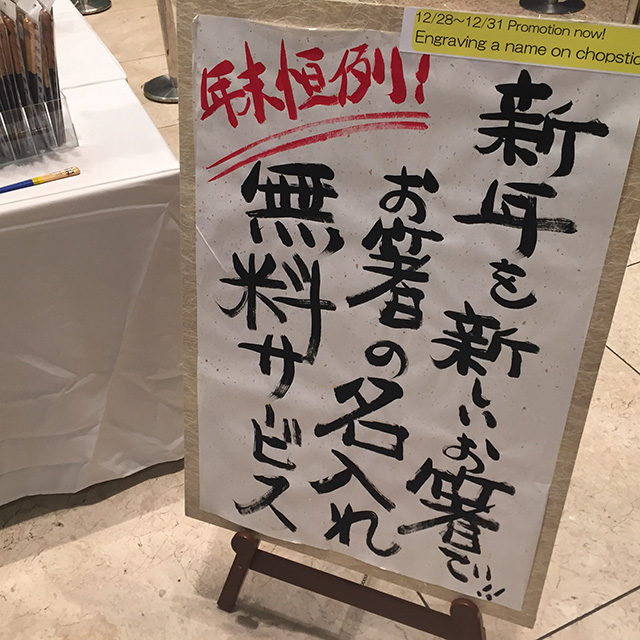 12/28~12/31 Promotion now!
Engraving a name on chopstic
年末恒例!
新年を新しいお箸で!!
お箸の名入れ
無料サービス